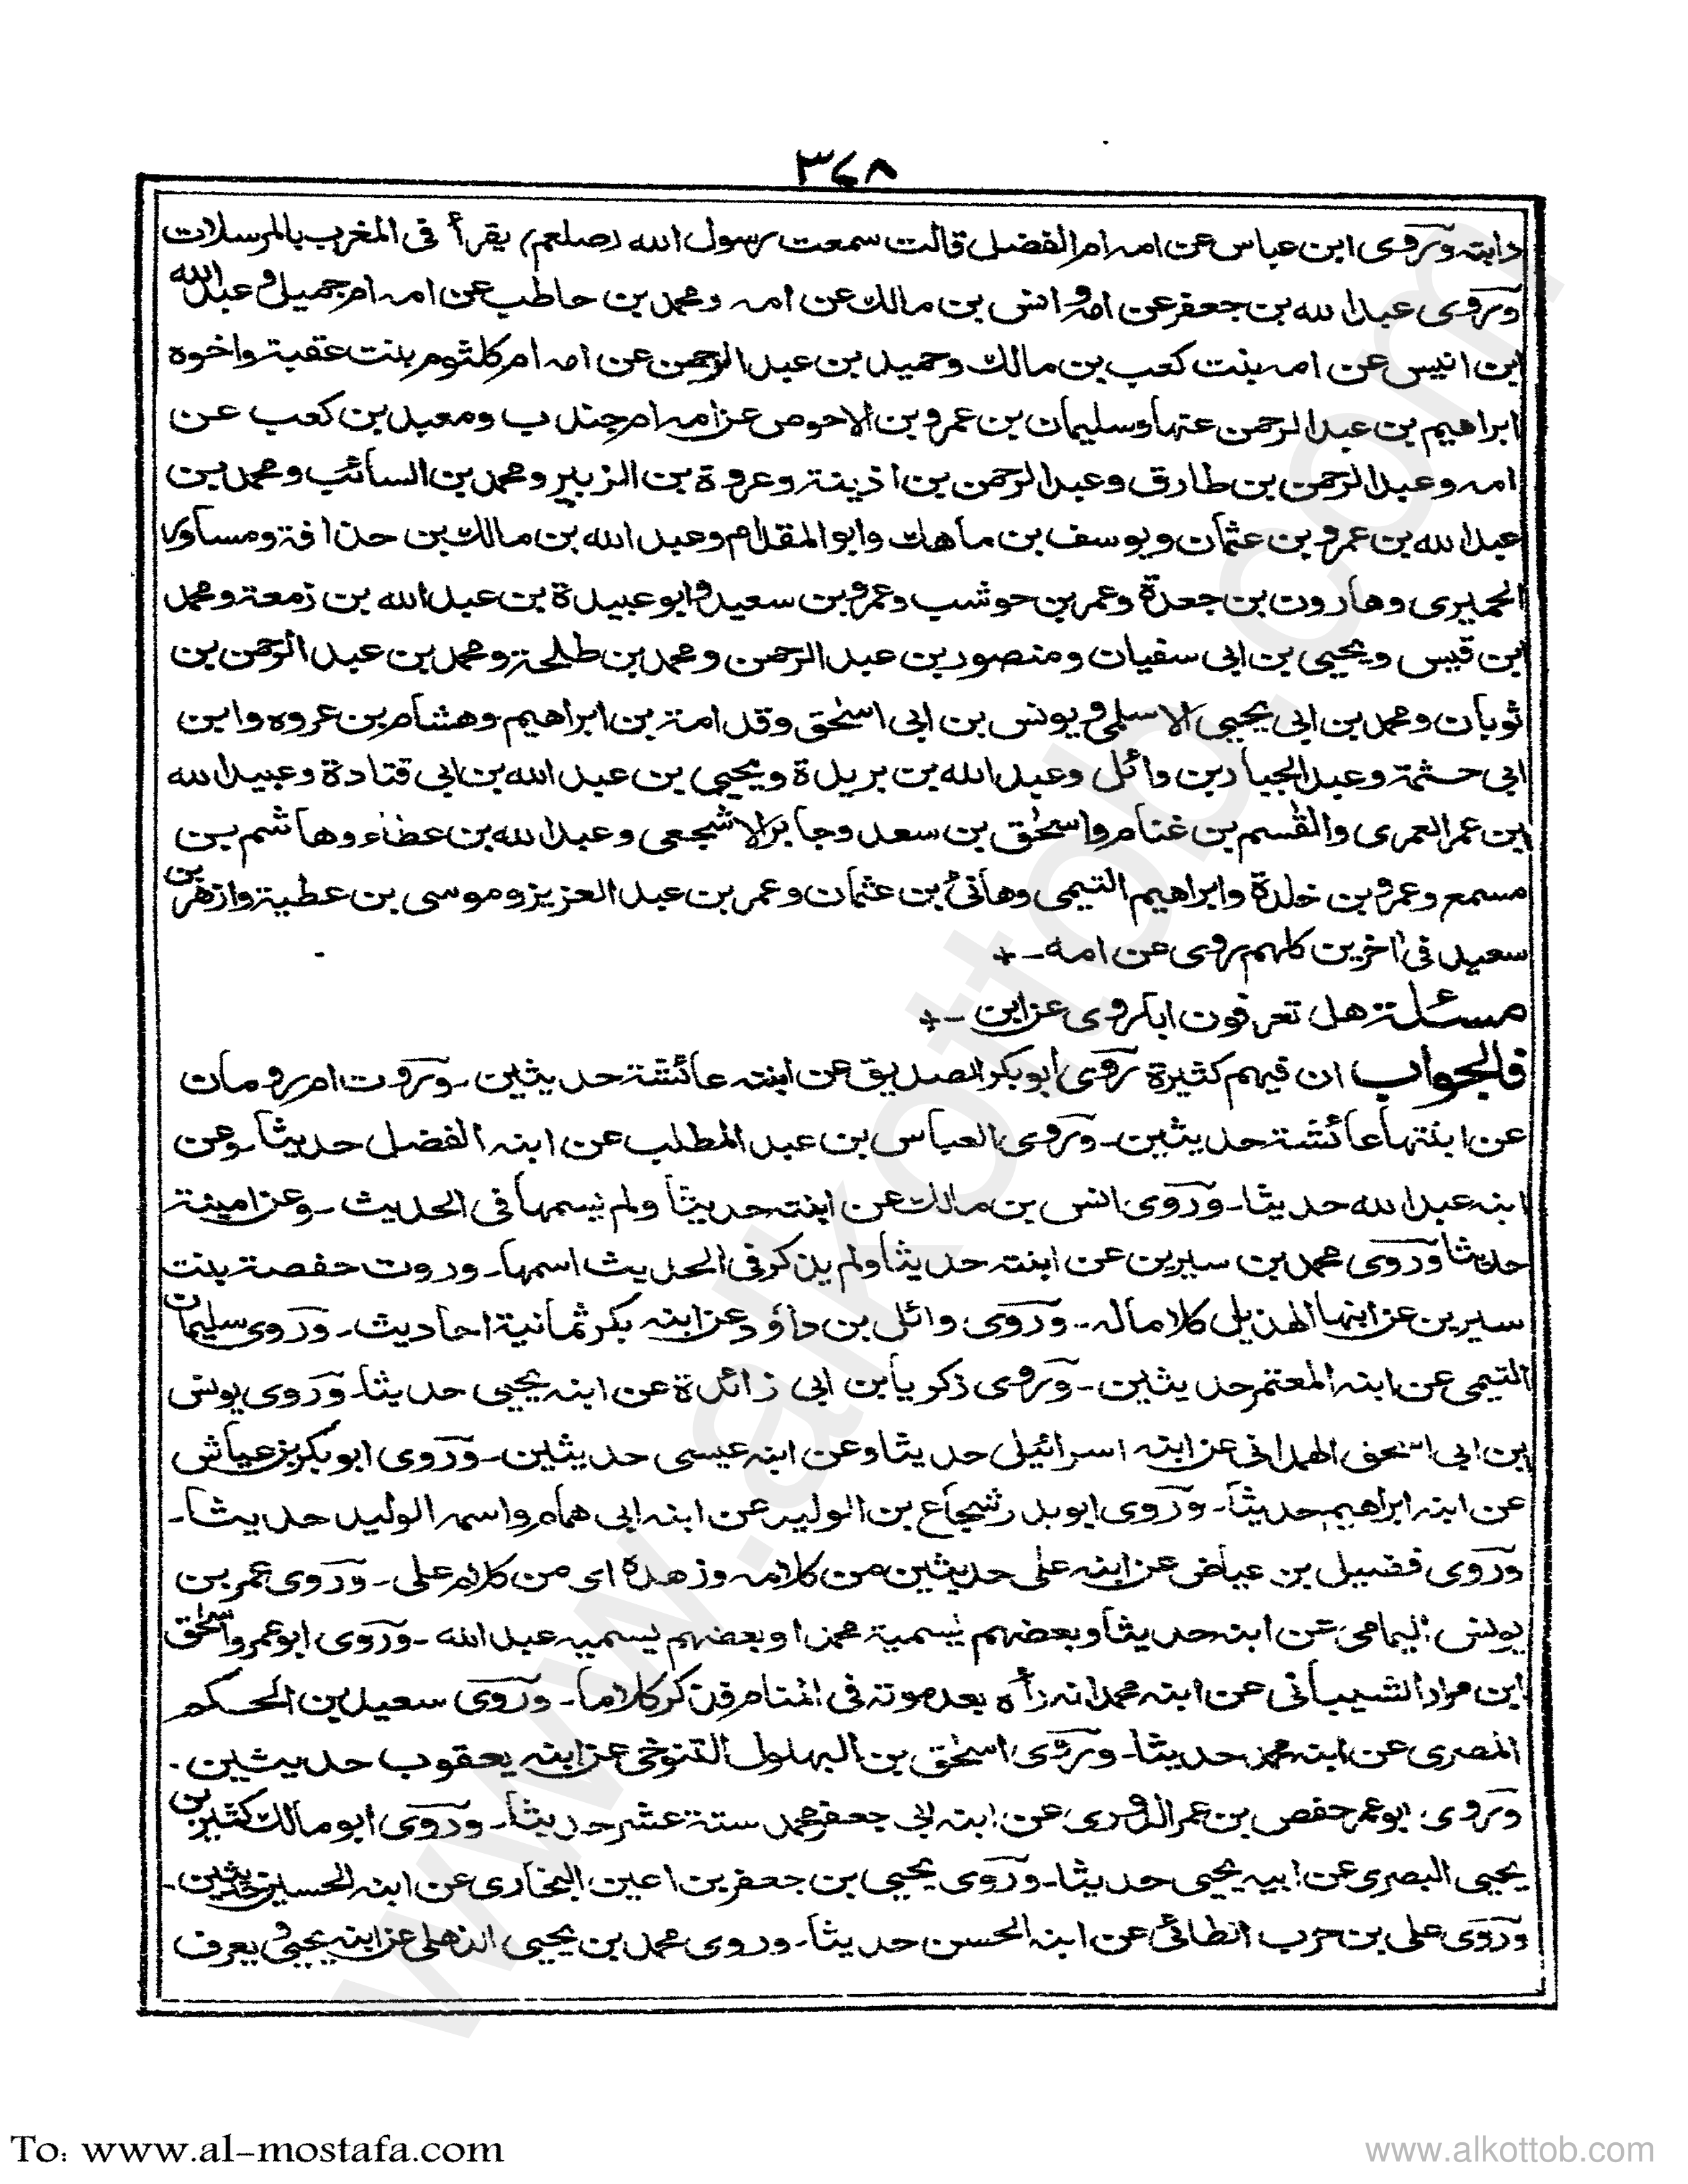 ٣٤٨
دابته وروى ابن عباس عن امه ام الفضل قالت سمعت رسول الله (صلعم) يقرأ فى المغرب بالمرسلات
وروى عبد الله بن جعفر عن امه وانس بن مالك عن امه ومحمد بن حاطب عن امه ام جميل وعبد الله
ابن انيس عن امه بنت كعب بن مالك وحميد بن عبد الرحمن عن امه ام كلثوم بنت عقبة واخوه
ابراهيم بن عبد الرحمن عنها وسليمان بن عمرو بن الاحوص عن امه ام جندب ومعبد بن كعب عن
امه وعبد الرحمن بن طارق وعبد الرحمن بن اذينة وعروة بن الزبير ومحمد بن السائب ومحمد بن
عبد الله بن عمرو بن عثمان ويوسف بن ماهك وابو المقدام وعبد الله بن مالك بن حذافة ومساور
الحميرى وهارون بن جعدة وعمر بن حوشب وعمرو بن سعيد وابو عبيدة بن عبد الله بن زمعة ومحمد
ابن قيس ويحيى بن ابى سفيان ومنصور بن عبد الرحمن ومحمد بن طلحة ومحمد بن عبد الرحمن بن
ثوبان ومحمد بن ابى يحيى الاسلمى ويونس بن ابى اسحٰق وقدامة بن ابراهيم وهشام بن عروه وابن
ابى حشمة وعبد الجبار بن وائل وعبد الله بن بريدة ويحيى بن عبد الله بن ابى قتادة وعبيد الله
ابن عمر العمرى والقٰسم بن غنام واسحٰق بن سعد وجابر الاشجعى وعبد الله بن عطاء وهاشم بن
مسمع وعمرو بن خلدة وابراهيم التيمى وهانئ بن عثمان وعمر بن عبد العزيز وموسى بن عطية وازهر بن
سعيد فى اٰخرين كلهم روى عن امه -+
مسئلة هل تعرفون ابا روى عن ابن -+
فالجواب ان فيهم كثيرة روى ابو بكر الصديق عن ابنته عائشة حديثين - وروت ام رومان
عن ابنتها عائشة حديثين - وروى العباس بن عبد المطلب عن ابنه الفضل حديثا - وعن
ابنه عبد الله حديثا - وروى انس بن مالك عن ابنته حديثا ولم يسمها فى الحديث - وعن امينة
حديثا وروى محمد بن سيرين عن ابنته حديثا ولم يذكر فى الحديث اسمها - وروت حفصة بنت
سيرين عن ابنها الهذيل كلاما له - وروى وائل بن داؤد عن ابنه بكر ثمانية احاديث - وروى سليمان
التيمى عن ابنه المعتمر حديثين - وروى زكريا بن ابى زائدة عن ابنه يحيى حديثا - وروى يونس
بن ابى اسحق الهمدانى عن ابنه اسرائيل حديثا وعن ابنه عيسى حديثين - وروى ابو بكر بن عياش
عن ابنه ابراهيم حديثا - وروى ابو بدر شجاع بن الوليد عن ابنه ابى همام واسمه الوليد حديثا -
وروى فضيل بن عياض عن ابنه على حديثين من كلامه وزهده اى من كلام على - وروى عمر بن
يونس اليمامى عن ابنه حديثا وبعضهم يسميه محمدا وبعضهم يسميه عبد الله - وروى ابو عمرو اسحٰق
ابن مراد الشيبانى عن ابنه محمد انه رأه بعد موته فى المنام فذكر كلاما - وروى سعيد بن الحكم
المصرى عن ابنه محمد حديثا - وروى اسحٰق بن البهلول التنوخى عن ابنه يعقوب حديثين -
وروى ابو عمر حفص بن عمر الدورى عن ابنه ابى جعفر محمد ستة عشر حديثا - وروى ابو مالك كثير بن
يحيى البصرى عن ابيه يحيى حديثا - وروى يحيى بن جعفر بن اعين البخارى عن ابنه الحسين حديثين -
وروى على بن حرب الطائى عن ابنه الحسن حديثا - وروى محمد بن يحيى الذهلى عن ابنه يحيى ويعرف
To: www.al-mostafa.com
www.alkottob.com
www.alkottob.com